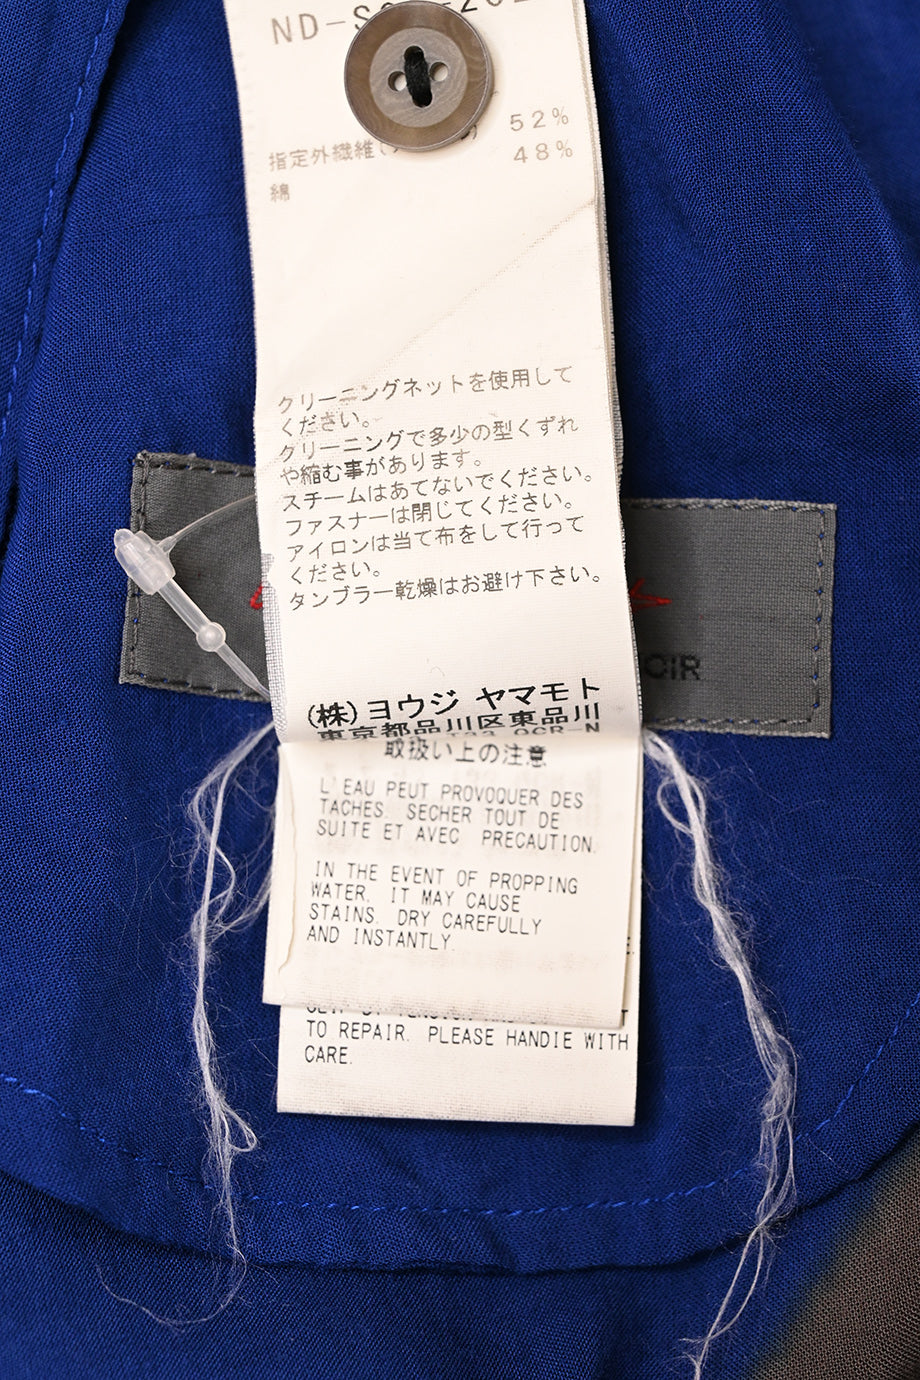 ND-S
52%
指定外繊維(
48%
綿
クリーニングネットを使用して
ください。
クリーニングで多少の型くずれ
や縮む事があります。
スチームはあてないでください。
ファスナーは閉じてください。
アイロンは当て布をして行って
ください。
タンブラー乾燥はお避け下さい。
OIR
(株)ヨウジ ヤマモト
東京都品川区東品川
OCR-N
取扱い上の注意
L'EAU PEUT PROVOQUER DES
TACHES. SECHER TOUT DE
SUITE ET AVEC PRECAUTION.
IN THE EVENT OF PROPPING
WATER. IT MAY CAUSE
STAINS. DRY CAREFULLY
AND INSTANTLY.
TO REPAIR. PLEASE HANDIE WITH
CARE.